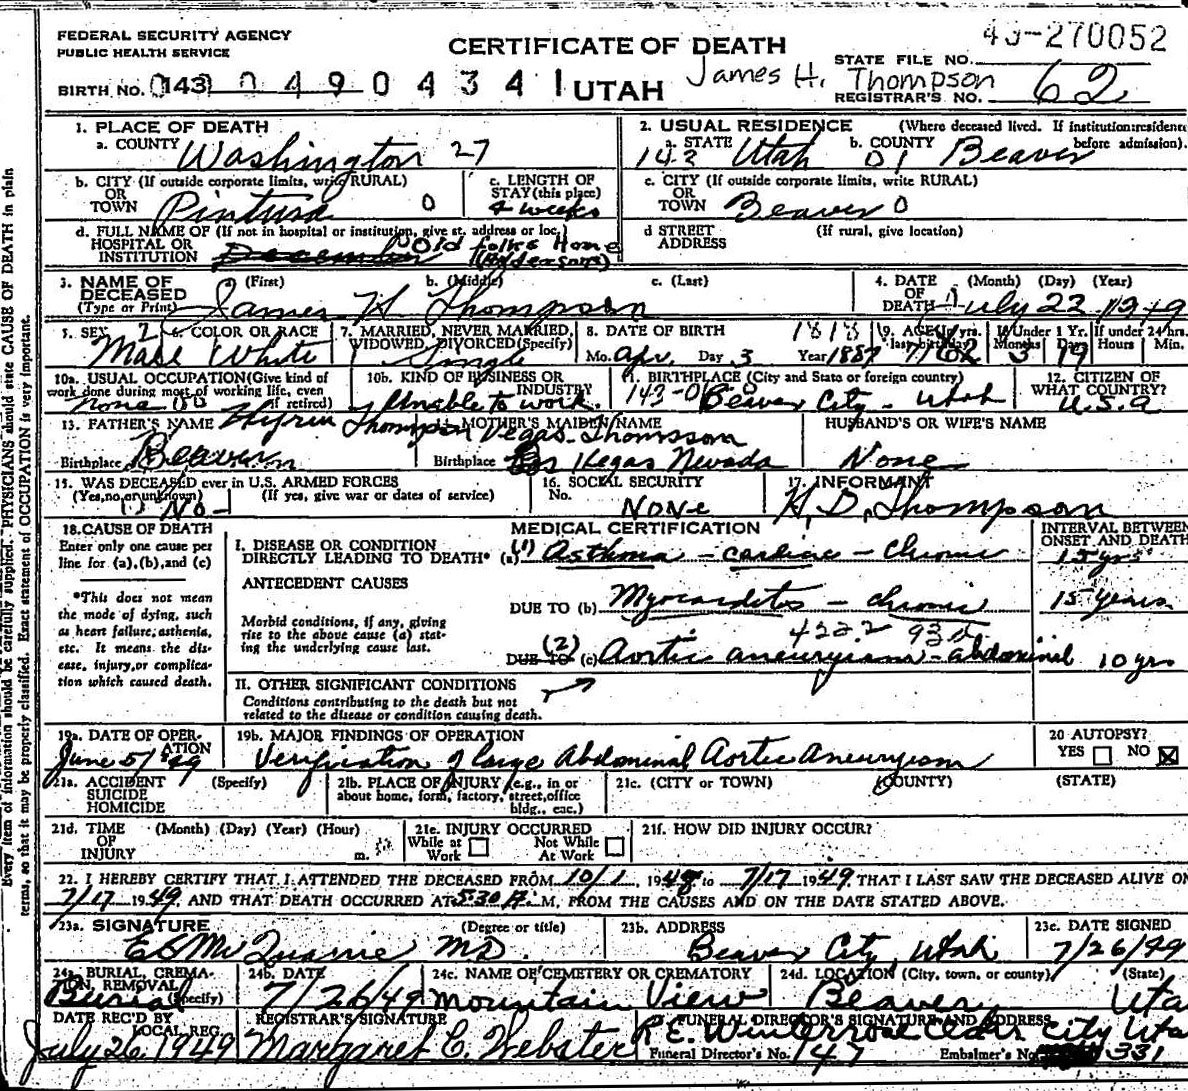 FEDERAL SECURITY AGENCY
PUBLIC HEALTH SERVICE
CERTIFICATE OF DEATH
UTAH
49-270052
STATE FILE NO.
BIRTH NO. 143 0490434
James H. Thompson
REGISTRAR'S NO. 62
1. PLACE OF DEATH
a. COUNTY Washington 27
2. USUAL RESIDENCE (Where deceased lived. If institution: residence before admission).
a. STATE 143 Utah b. COUNTY 01 Beaver
b. CITY (If outside corporate limits, write RURAL) OR TOWN Pintura 0
c. LENGTH OF STAY (this place) 4 weeks
c. CITY (If outside corporate limits, write RURAL) OR TOWN Beaver 0
d. FULL NAME OF (If not in hospital or institution, give st. address or loc.) HOSPITAL OR INSTITUTION Old folks Home
d STREET ADDRESS (If rural, give location)
3. NAME OF DECEASED (Type or Print) a. (First) b. (Middle) c. (Last)
James H Thompson
4. DATE OF DEATH (Month) (Day) (Year)
July 22 1949
5. SEX Male
6. COLOR OR RACE White
7. MARRIED, NEVER MARRIED, WIDOWED, DIVORCED (Specify) Single
8. DATE OF BIRTH Mo. Apr. Day 3 Year 1887
9. AGE (In yrs. last birthday) 62
If Under 1 Yr. Months 3 Days 19
If under 24 hrs. Hours Min.
10a. USUAL OCCUPATION (Give kind of work done during most of working life, even if retired) None
10b. KIND OF BUSINESS OR INDUSTRY Unable to work.
11. BIRTHPLACE (City and State or foreign country) Beaver City - Utah
12. CITIZEN OF WHAT COUNTRY? U.S.A
13. FATHER'S NAME Hyrum Thompson
Birthplace Beaver
14. MOTHER'S MAIDEN NAME Vegas Thomsson
Birthplace Las Vegas Nevada
HUSBAND'S OR WIFE'S NAME
None
15. WAS DECEASED ever in U.S. ARMED FORCES
(Yes, no, or unknown) (If yes, give war or dates of service)
No
16. SOCIAL SECURITY No. None
17. INFORMANT
H. D. Thompson
18. CAUSE OF DEATH
Enter only one cause per line for (a), (b), and (c)
*This does not mean the mode of dying, such as heart failure, asthenia, etc. It means the disease, injury, or complication which caused death.
MEDICAL CERTIFICATION
INTERVAL BETWEEN ONSET AND DEATH
I. DISEASE OR CONDITION DIRECTLY LEADING TO DEATH* (a) (1) Asthma - cardiac - chronic 15 yrs
ANTECEDENT CAUSES
DUE TO (b) Myocarditos - chronic 15 years
Morbid conditions, if any, giving rise to the above cause (a) stating the underlying cause last.
422.2 93d
(2)
DUE TO (c) Aortic aneurysm - abdominal 10 yrs
II. OTHER SIGNIFICANT CONDITIONS
Conditions contributing to the death but not related to the disease or condition causing death.
19a. DATE OF OPERATION June 5/49
19b. MAJOR FINDINGS OF OPERATION
Verification of large Abdominal Aortic Aneurysm
20 AUTOPSY? YES NO X
21a. ACCIDENT SUICIDE HOMICIDE (Specify)
21b. PLACE OF INJURY (e.g., in or about home, form, factory, street, office bldg., etc.)
21c. (CITY OR TOWN) (COUNTY) (STATE)
21d. TIME OF INJURY (Month) (Day) (Year) (Hour) m.
21e. INJURY OCCURRED While at Work Not While At Work
21f. HOW DID INJURY OCCUR?
22. I HEREBY CERTIFY THAT I ATTENDED THE DECEASED FROM 10/1, 1948 to 7/17 1949. THAT I LAST SAW THE DECEASED ALIVE ON
7/17 1949. AND THAT DEATH OCCURRED AT 5:30 A. M, FROM THE CAUSES AND ON THE DATE STATED ABOVE.
23a. SIGNATURE (Degree or title)
E S McQuarrie MD.
23b. ADDRESS
Beaver City, Utah
23c. DATE SIGNED
7/26/49
24a. BURIAL, CREMATION, REMOVAL (Specify) Burial
24b. DATE 7/26/49
24c. NAME OF CEMETERY OR CREMATORY
Mountain View
24d. LOCATION (City, town, or county) (State)
Beaver, Uta
DATE REC'D BY LOCAL REG.
July 26, 1949
REGISTRAR'S SIGNATURE
Margaret E. Webster
FUNERAL DIRECTOR'S SIGNATURE AND ADDRESS
Cedar City Uta
Funeral Director's No. 147 Embalmer's No. 331
Every item of information should be carefully supplied. PHYSICIANS should state CAUSE OF DEATH in plain
terms, so that it may be properly classified. Exact statement of OCCUPATION is very important.